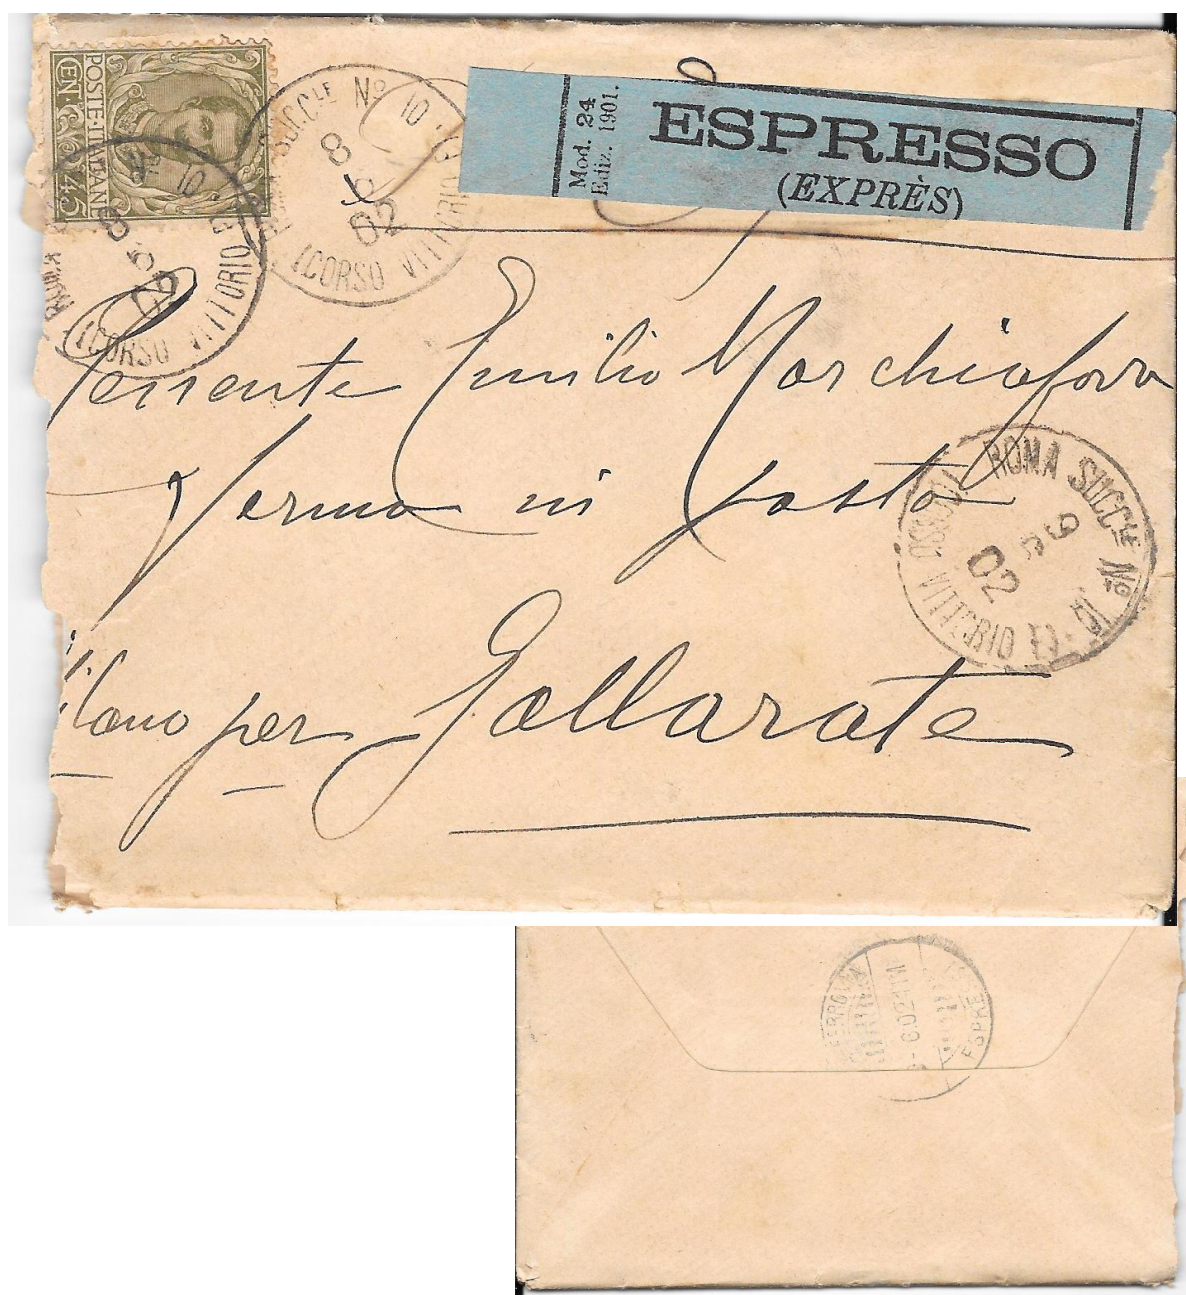 POSTE·ITALIANE
CENT. 45
ROMA SUCC.LE No 10
8 6 02
(CORSO VITTORIO E.)
Mod. 24
Ediz. 1901.
ESPRESSO
(EXPRÈS)
No 10
8 6 02
(CORSO VITTORIO E.
Tenente Emilio Marchiafava
Fermo in Posta
ROMA SUCC.LE No 10
02
(CORSO VITTORIO E.)
ilano per Gallarate
FERROVIA
ESPRE